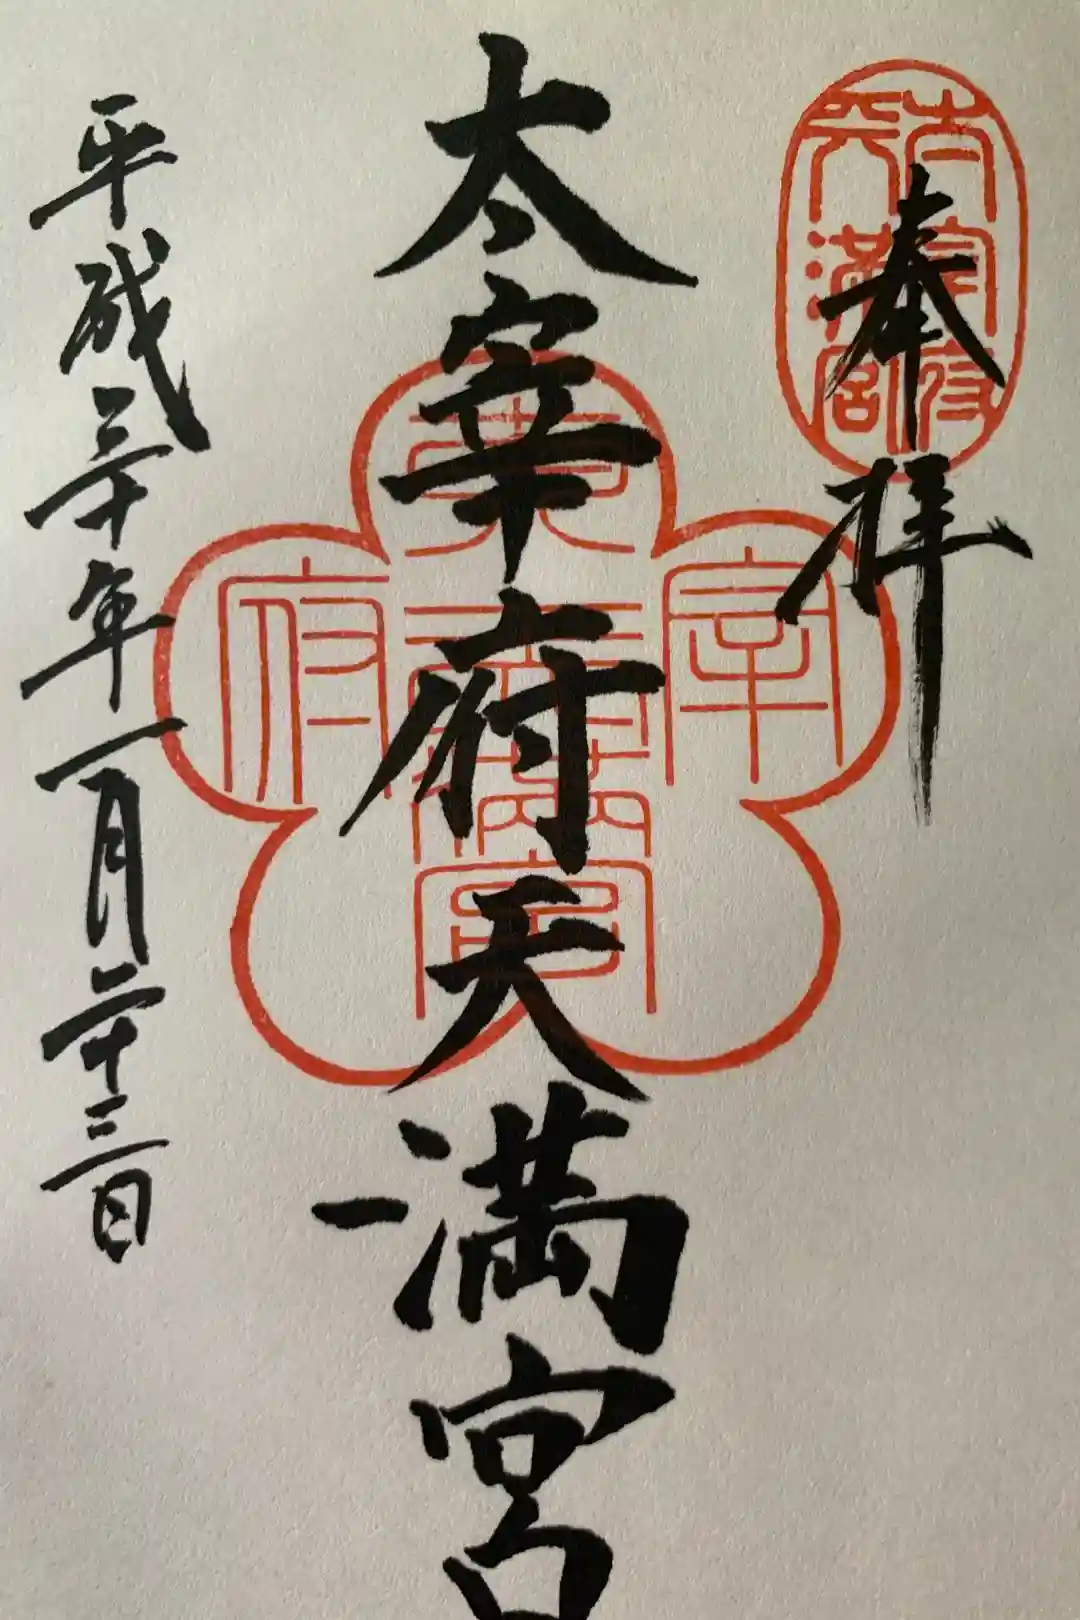 奉拝
太宰府
天満宮
太宰府天満宮
宰
府
平成三十年一月二十三日